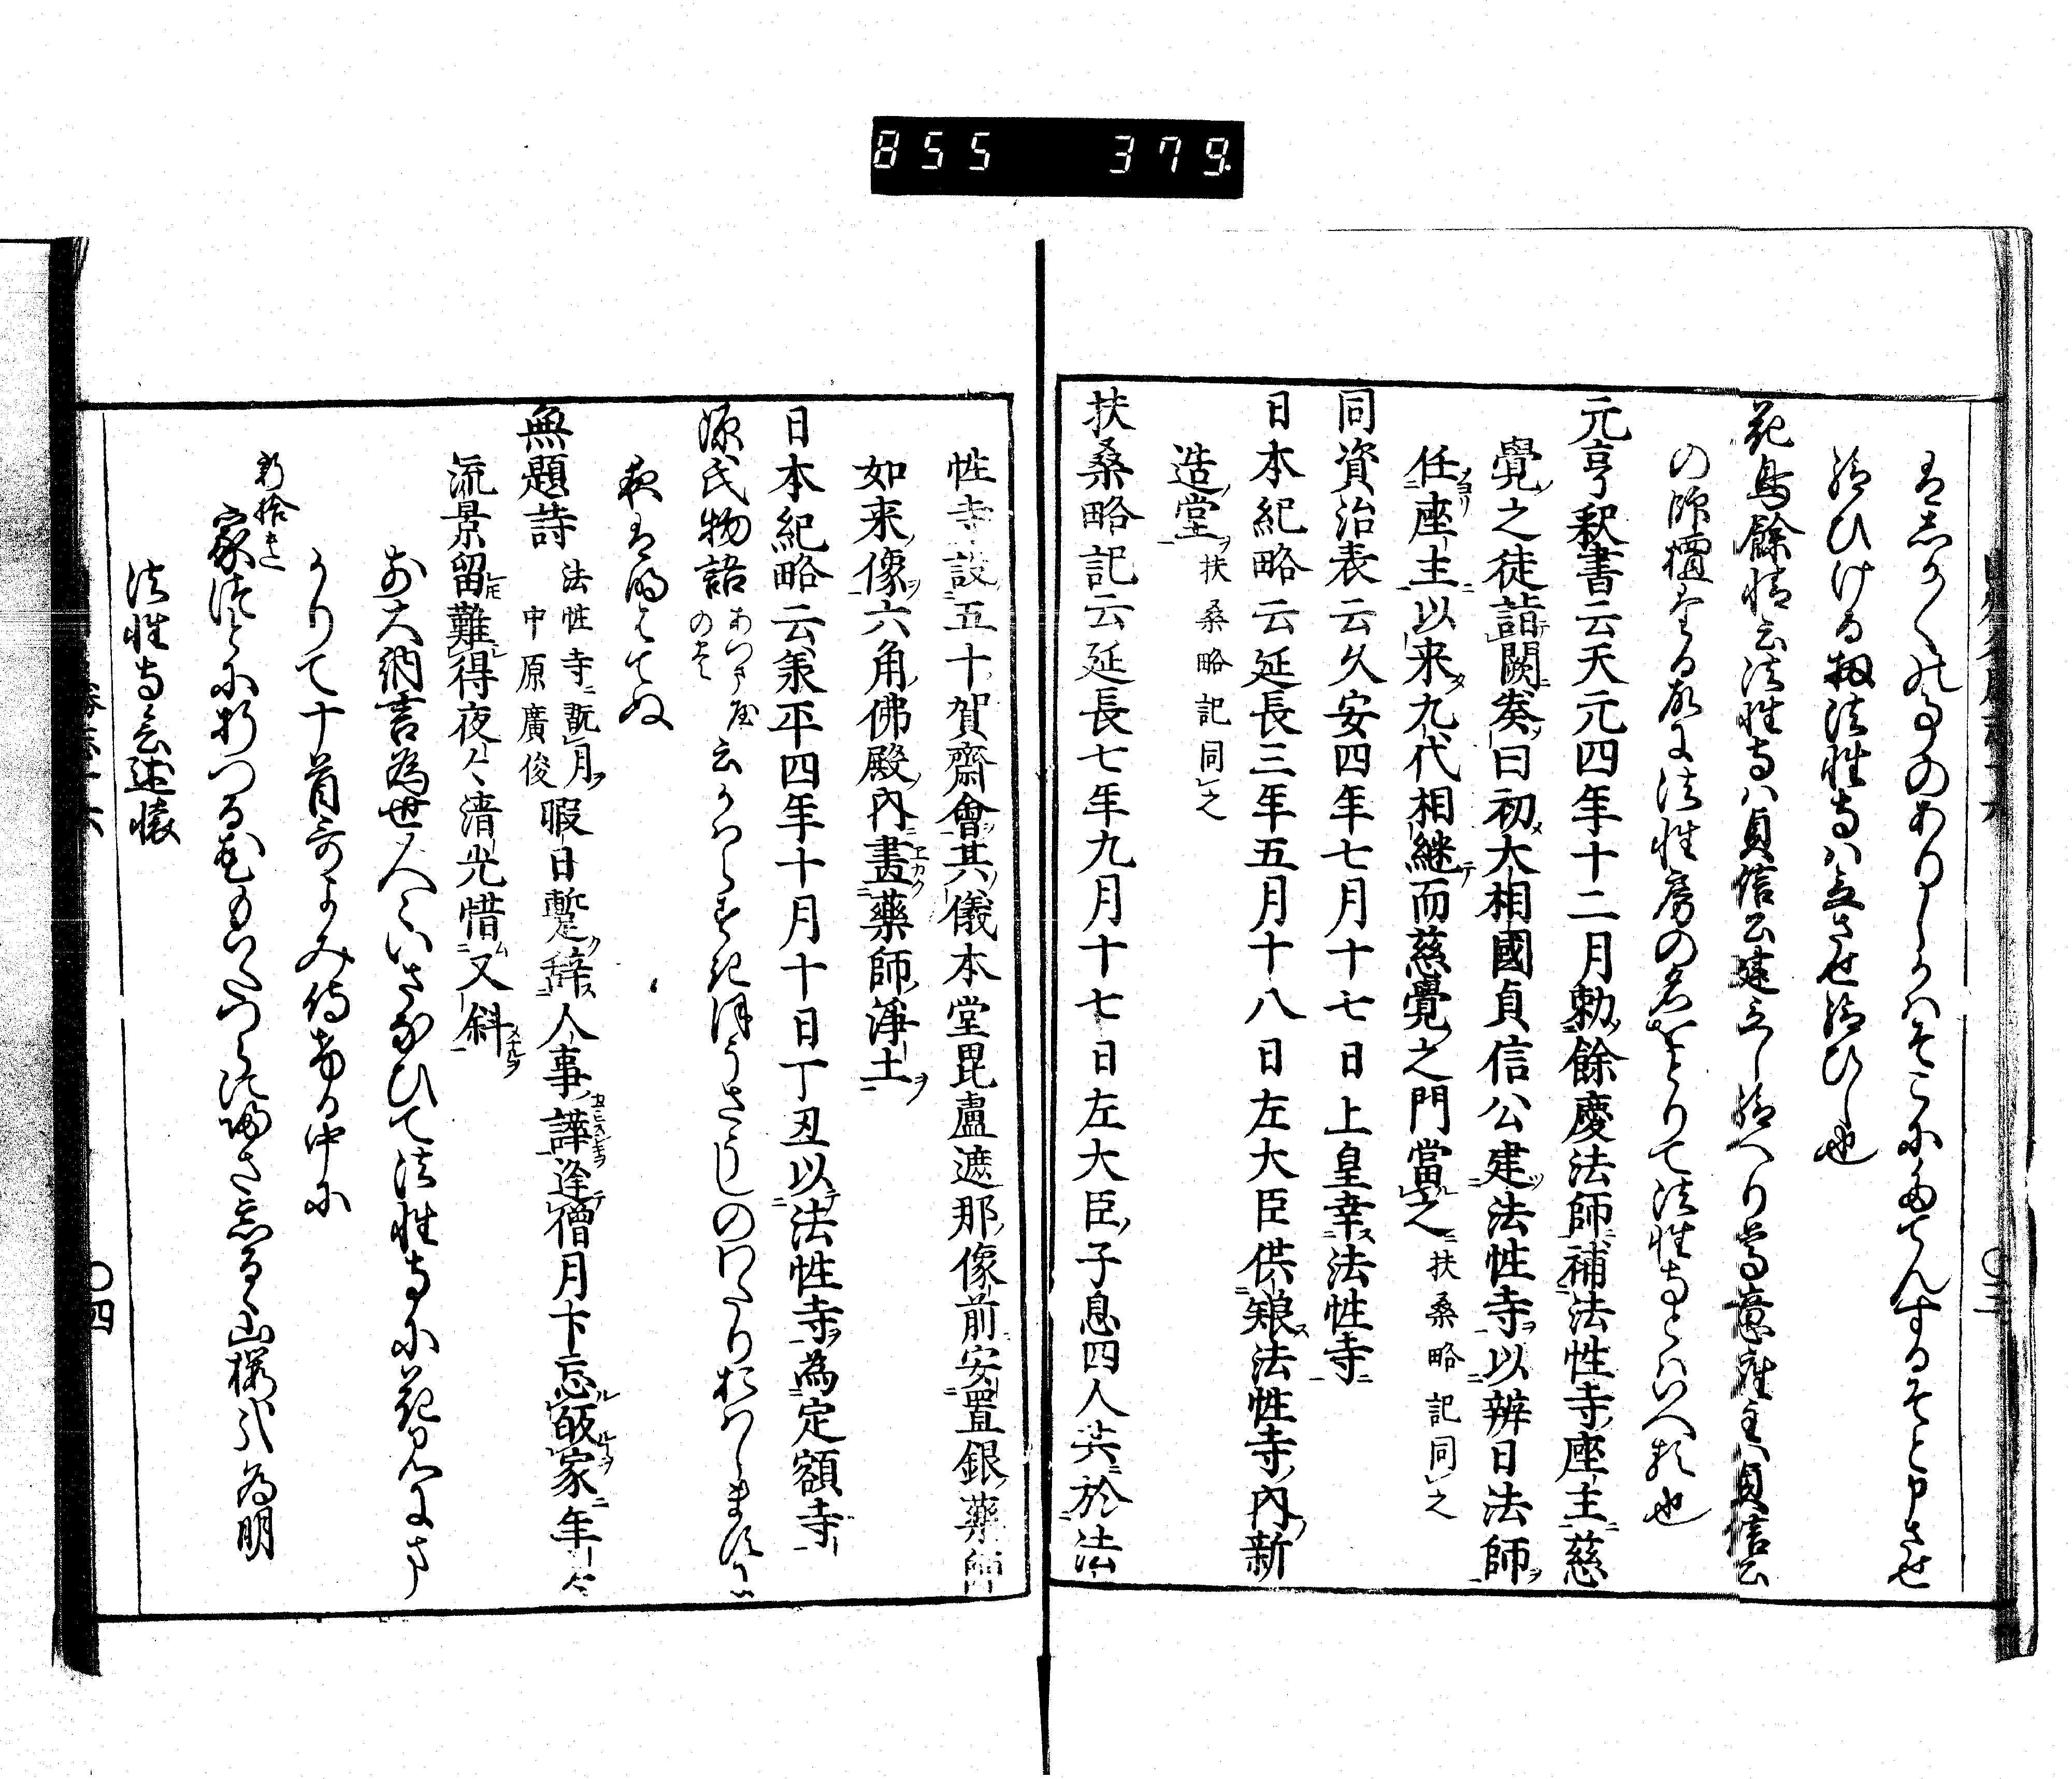 855 379
給ひける扨法性寺ハ立させ給ひし也
花鳥餘情云法性寺ハ貞信公建立し給へり尊意座主ハ貞信公
の師檀なる故に法性房の名をとりて法性寺とハいへる也
元亨釈書云天元四年十二月勅餘慶法師補法性寺座主慈
覺之徒詣闕奏曰初大相國貞信公建法性寺以辨日法師
任座主以来九代相継而慈覺之門當之 扶桑略記同之
同資治表云久安四年七月十七日上皇幸法性寺
日本紀略云延長三年五月十八日左大臣供養法性寺内新
造堂 扶桑略記同之
扶桑略記云延長七年九月十七日左大臣子息四人共於法
性寺設五十賀齋會其儀本堂毘盧遮那像前安置銀薬師
如来像六角佛殿内畫薬師浄土
日本紀略云承平四年十月十日丁丑以法性寺為定額寺
源氏物語 あつま屋のまき 云かハらすきほうさうしのわたりおハしますに
夜は明はてぬ
無題詩 法性寺翫月 中原廣俊 暇日蹔辞人事譁逢僧月下忘皈家年々
流景留難得夜々清光惜又斜
前大納言為世人々いさなひて法性寺に花見にま
かりて十首哥よみ侍ける中に
新拾遺
家つとに折つる花もいたつらに帰さ忘る山櫻哉 為明
法性寺会述懐
〇四